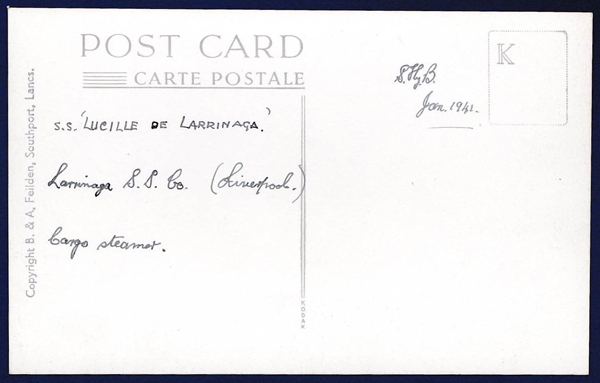 POST CARD
CARTE POSTALE
K
Jan. 1941.
s.s. 'LUCILLE DE LARRINAGA.'
Larrinaga S.S. Co. (Liverpool.)
Cargo steamer.
Copyright B. & A. Feilden, Southport, Lancs.
KODAK